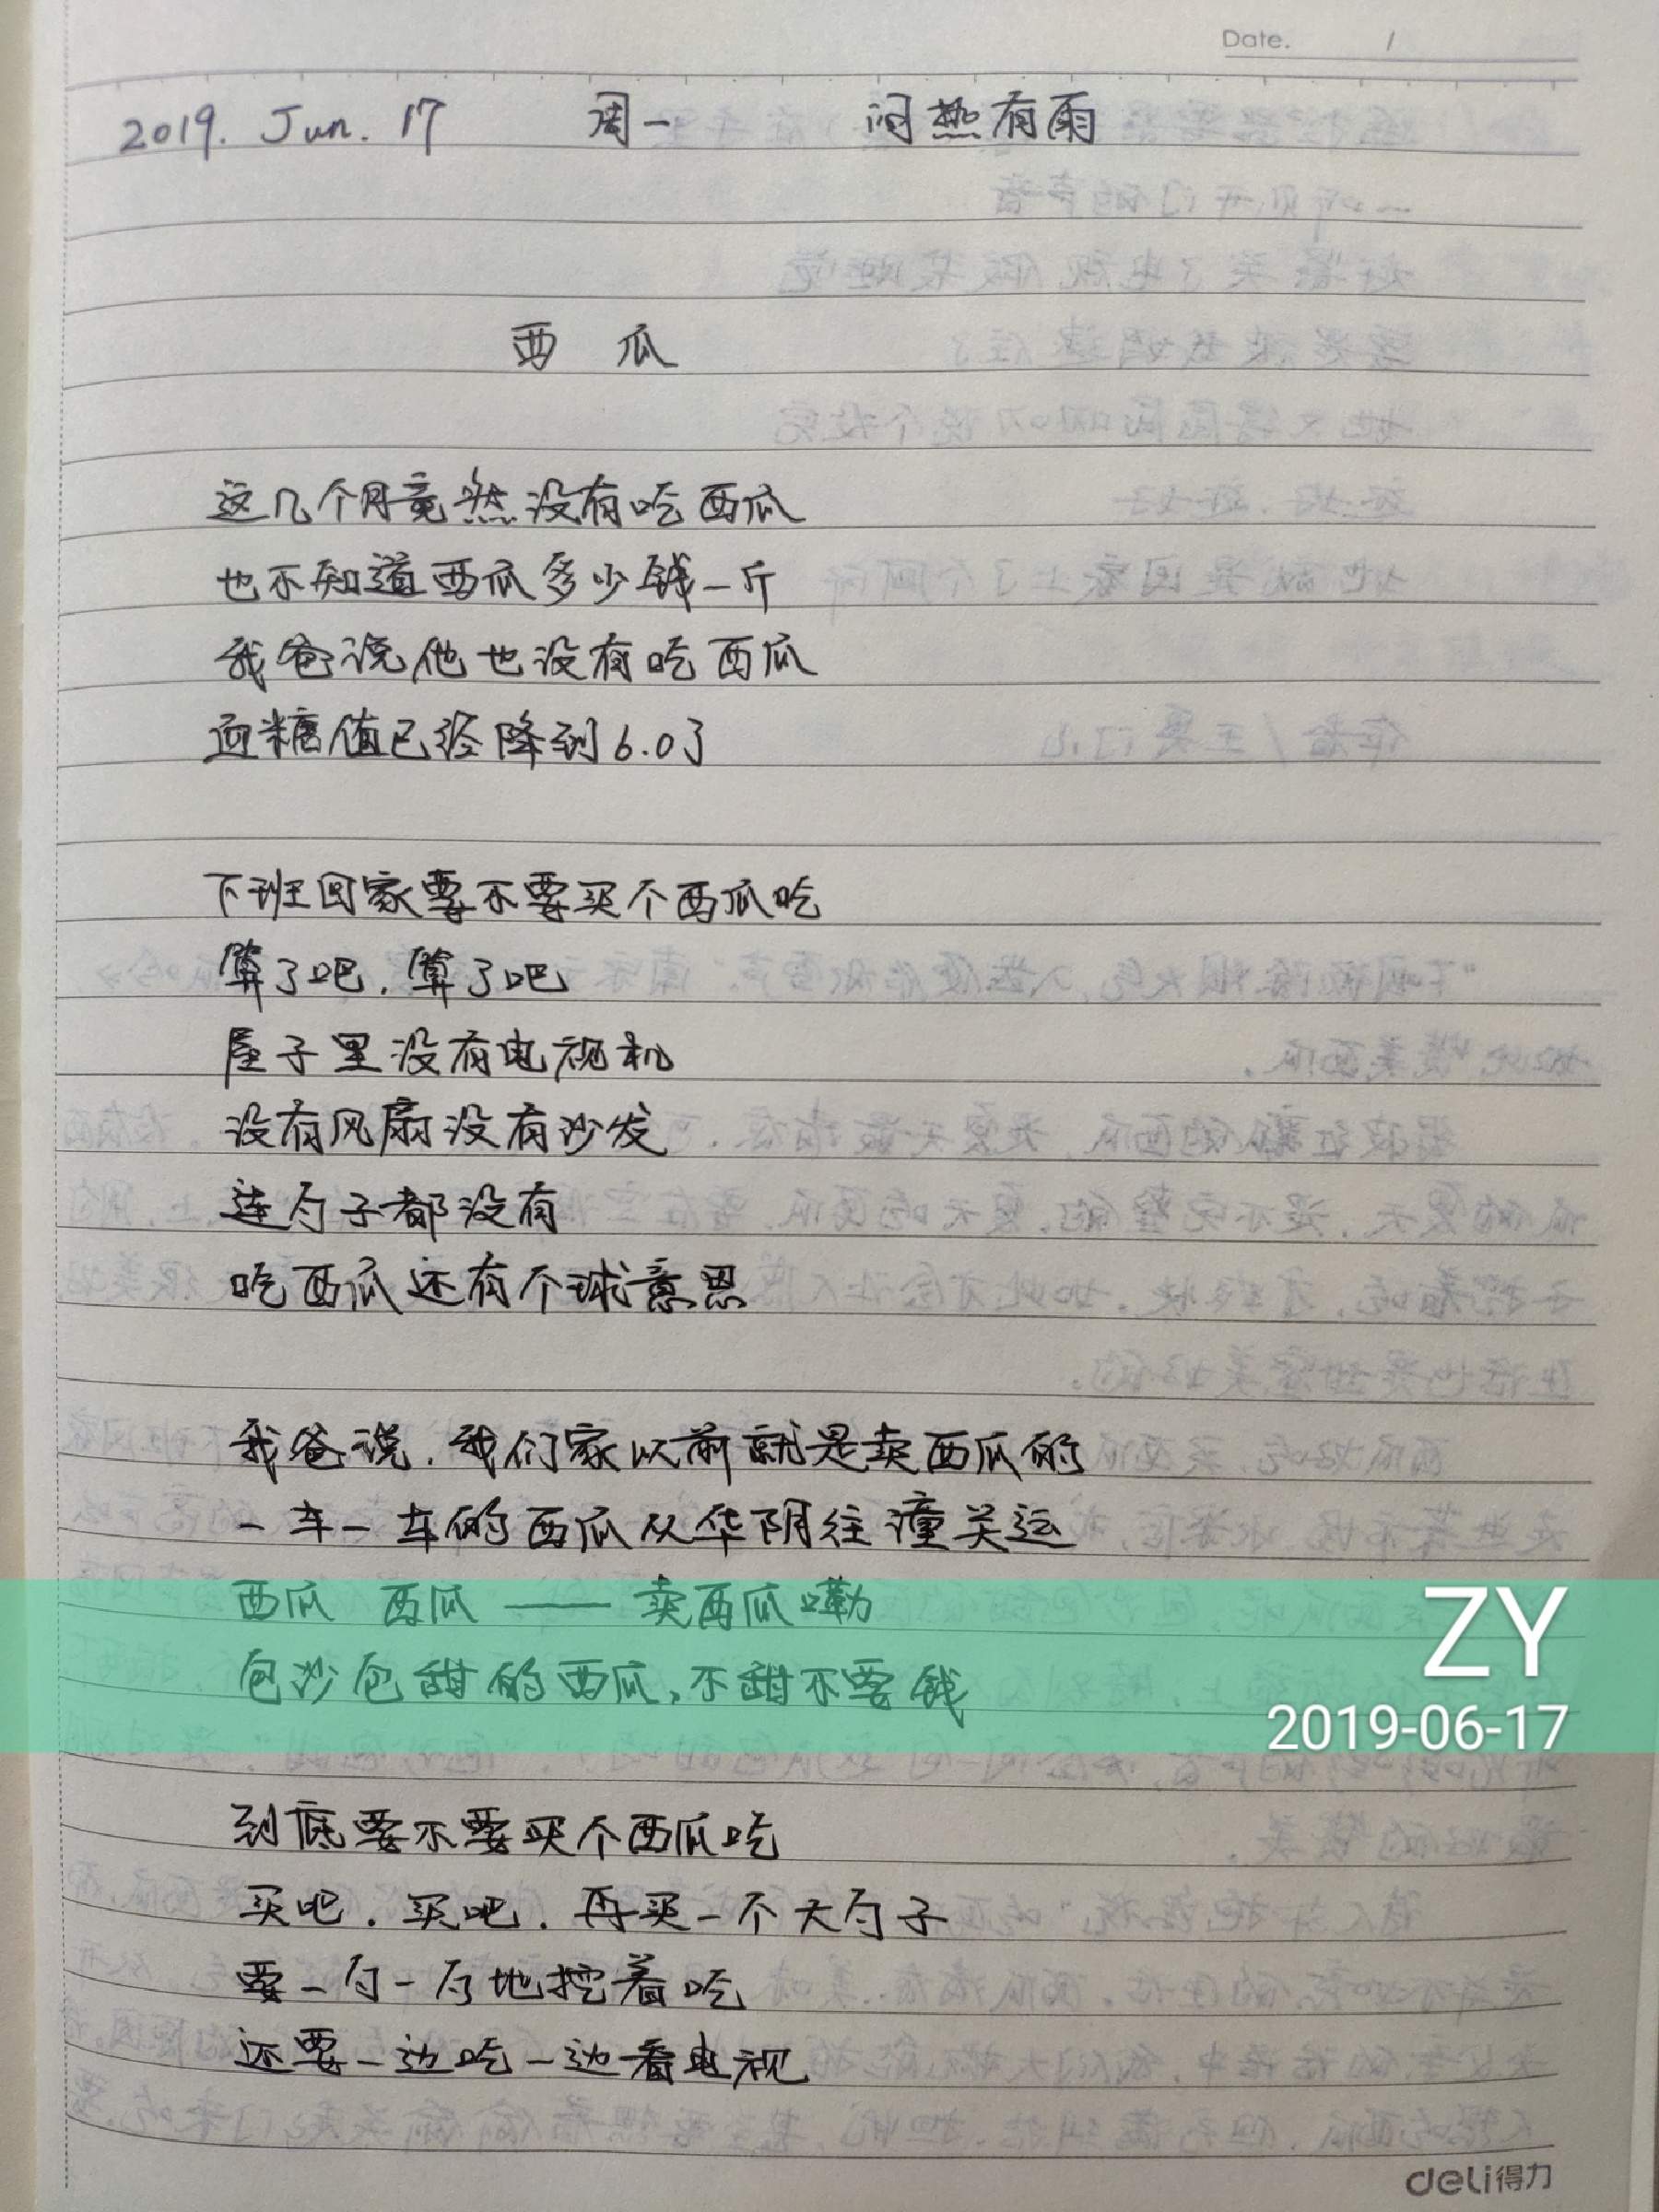 Date. /
2019. Jun. 17 周一 闷热有雨
西 瓜
这几个月竟然没有吃西瓜
也不知道西瓜多少钱一斤
我爸说他也没有吃西瓜
血糖值已经降到6.0了
下班回家要不要买个西瓜吃
算了吧，算了吧
屋子里没有电视机
没有风扇没有沙发
连勺子都没有
吃西瓜还有个球意思
我爸说，我们家以前就是卖西瓜的
一车一车的西瓜从华阴往潼关运
西瓜 西瓜 —— 卖西瓜嘞
包沙包甜的西瓜，不甜不要钱
ZY
2019-06-17
到底要不要买个西瓜吃
买吧，买吧，再买一个大勺子
要一勺一勺地挖着吃
还要一边吃一边看电视
deli得力